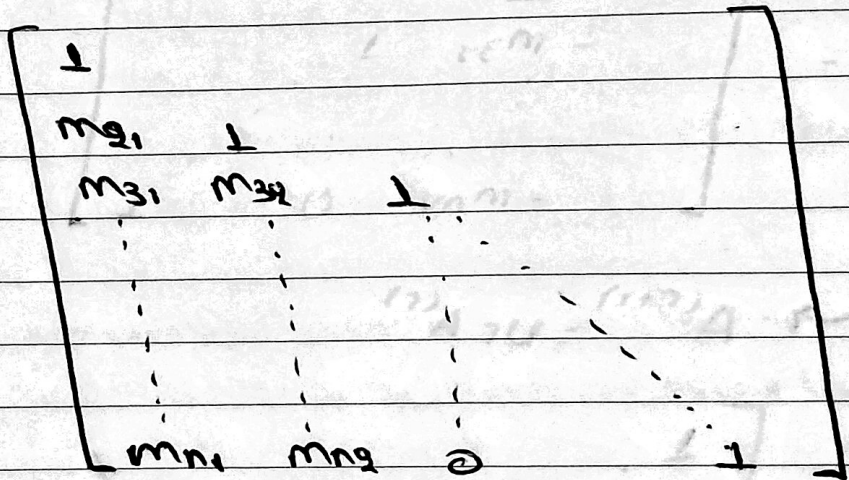 1
m21 1
m31 m32 1
mn1 mn2 0 1